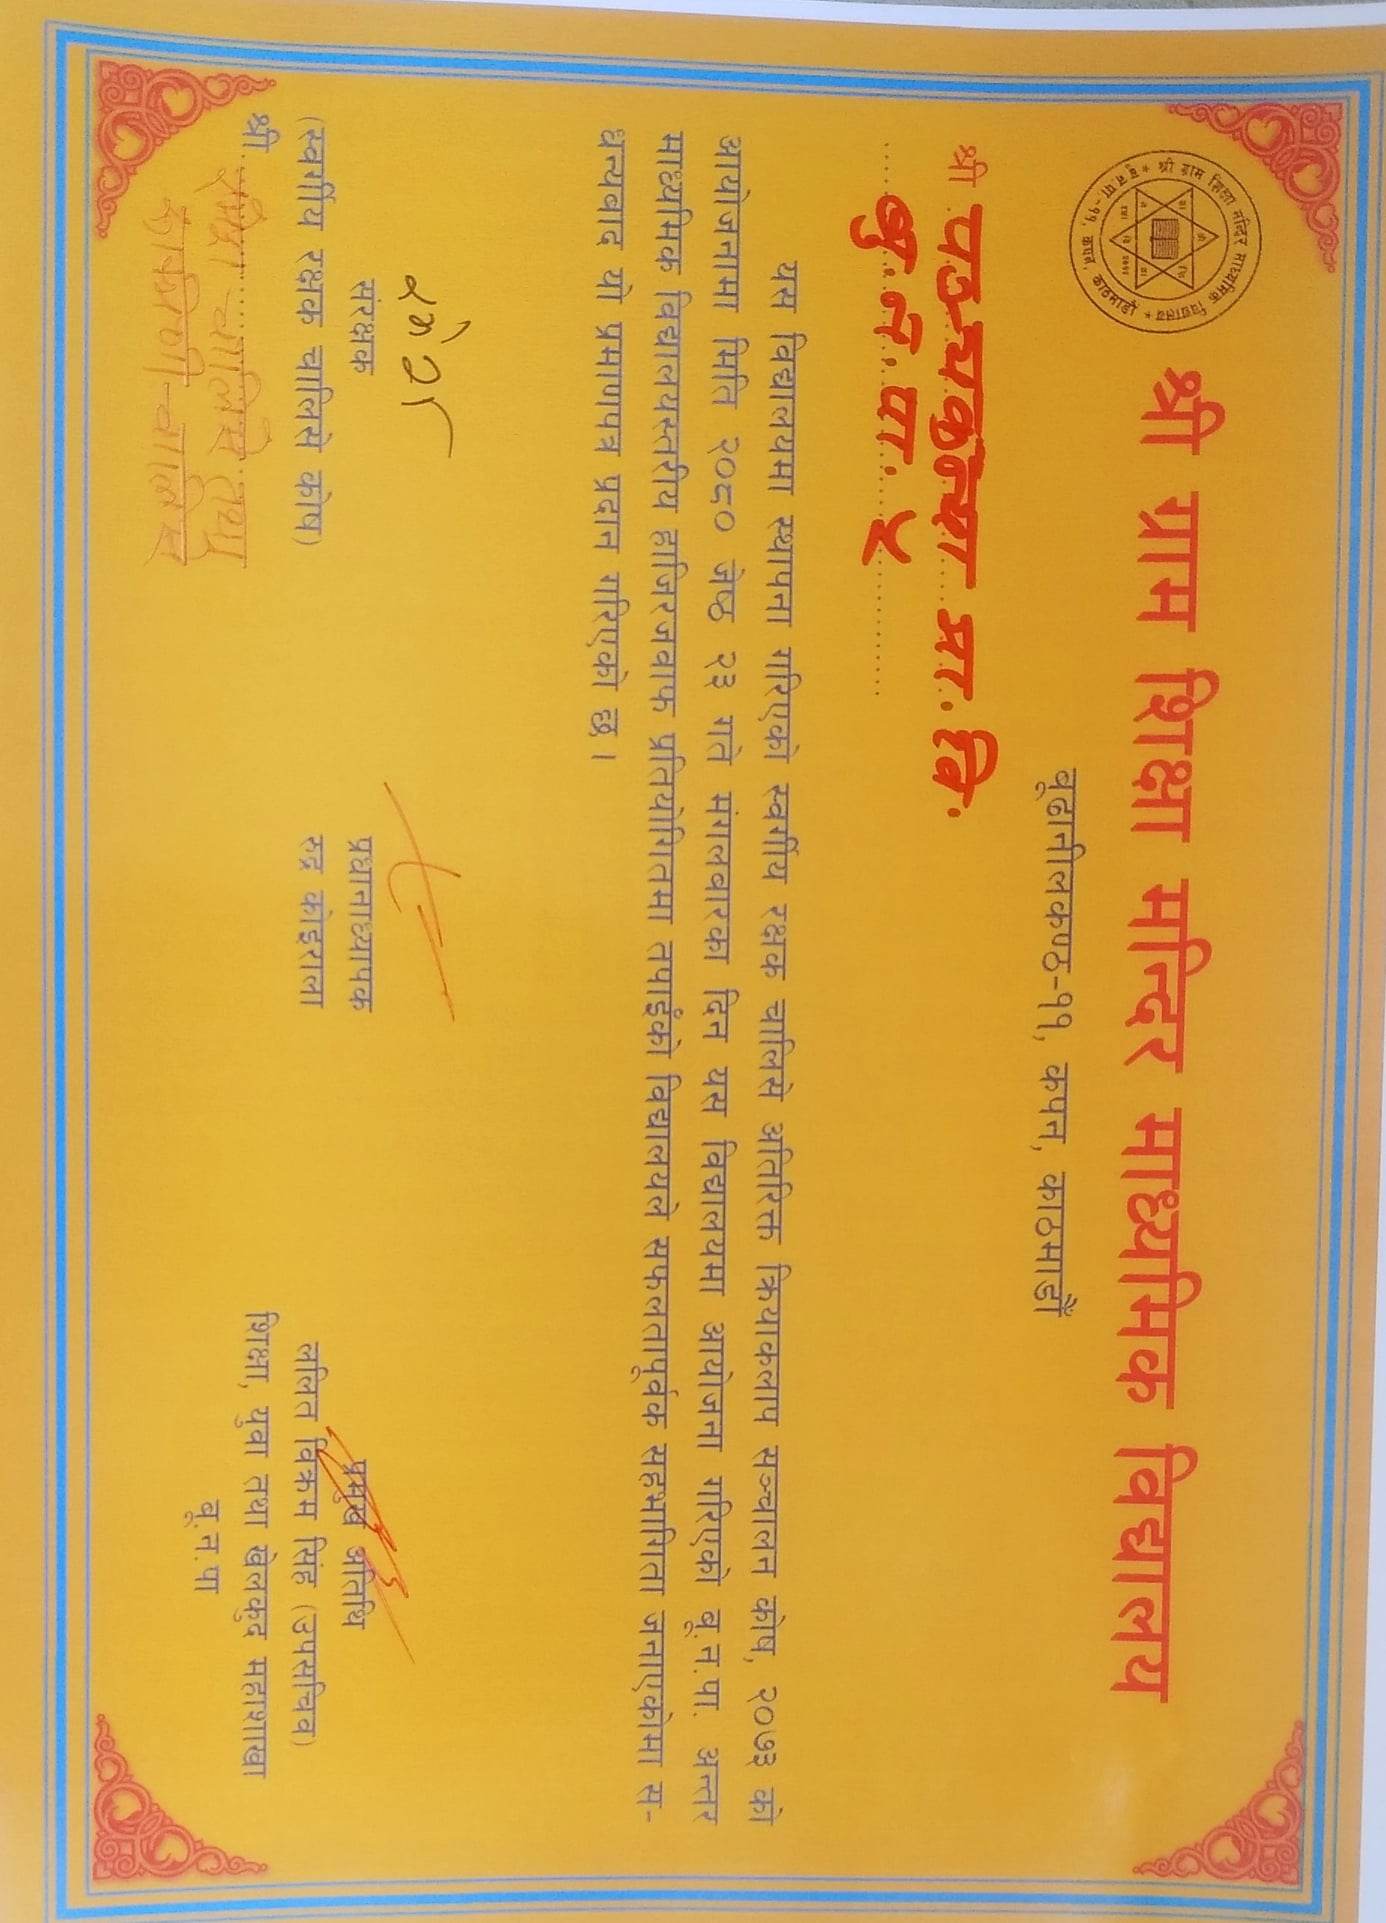 श्री ग्राम शिक्षा मन्दिर माध्यमिक विद्यालय
बूढानीलकण्ठ-११, कपन, काठमाडौँ
श्री पञ्चकन्या प्रा. वि.
बु. न. पा. ५
यस विद्यालयमा स्थापना गरिएको स्वर्गीय रक्षक चालिसे अतिरिक्त क्रियाकलाप सञ्चालन कोष, २०७३ को
आयोजनामा मिति २०८० जेष्ठ २३ गते मंगलवारका दिन यस विद्यालयमा आयोजना गरिएको बू.न.पा. अन्तर
माध्यमिक विद्यालयस्तरीय हाजिरजवाफ प्रतियोगितमा तपाईंको विद्यालयले सफलतापूर्वक सहभागिता जनाएकोमा स-
धन्यवाद यो प्रमाणपत्र प्रदान गरिएको छ ।
संरक्षक
(स्वर्गीय रक्षक चालिसे कोष)
श्री
प्रधानाध्यापक
रुद्र कोइराला
प्रमुख अतिथि
ललित विक्रम सिंह (उपसचिव)
शिक्षा, युवा तथा खेलकुद महाशाखा
बू.न.पा